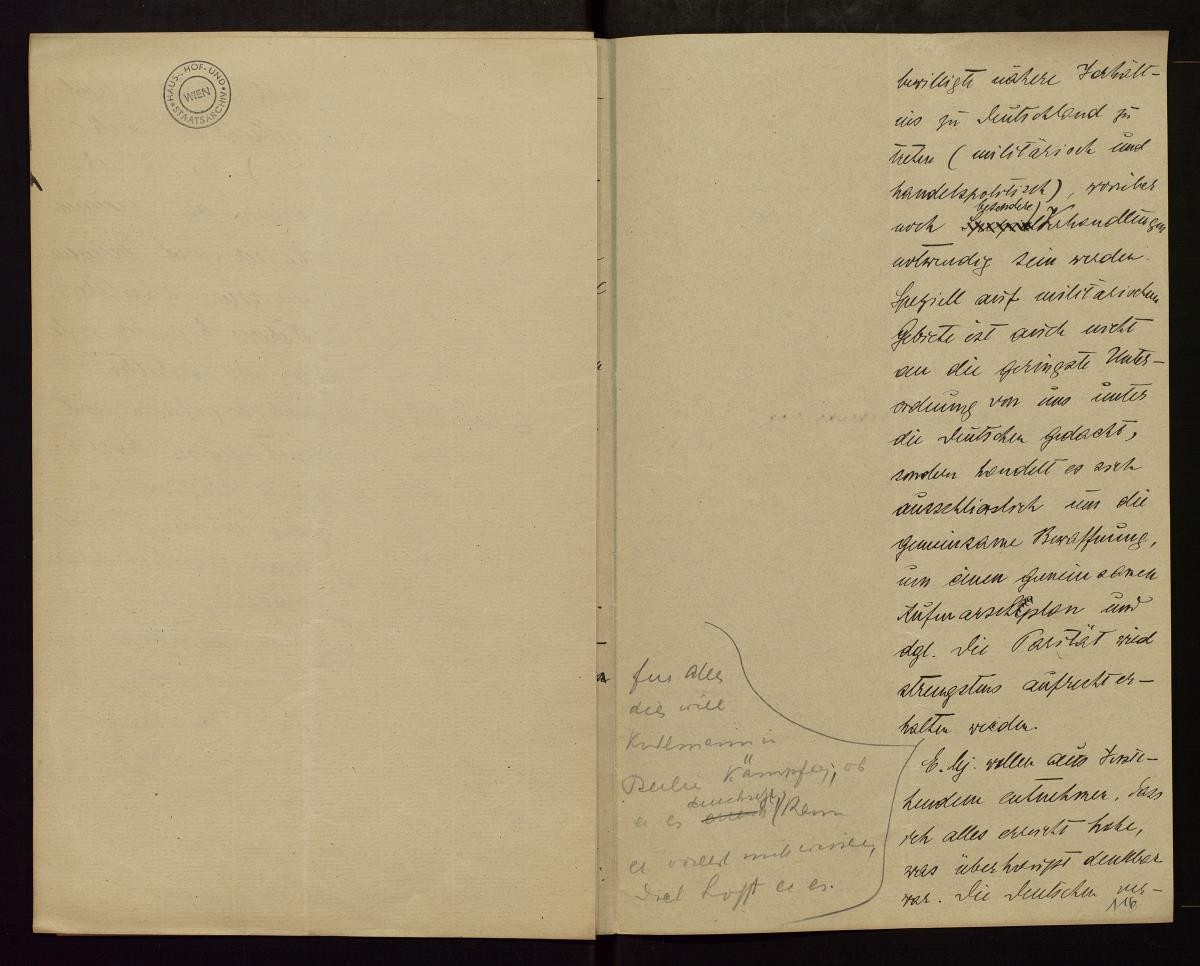 HAUS-, HOF- UND STAATSARCHIV
WIEN
bewilligte nähere Verhält-
nis zu Deutschland zu
treten (militärisch und
handelspolitisch), worüber
noch besondere Verhandlungen
notwendig sein werden.
Speziell auf militärischem
Gebiete ist auch nicht
an die geringste Unter-
ordnung von uns unter
die Deutschen gedacht,
sondern handelt es sich
ausschliesslich um die
gemeinsame Bewaffnung,
um einen gemeinsamen
Aufmarschplan und
dgl. Die Parität wird
strengstens aufrecht er-
halten werden.
E. Mj. wollen aus Vorste-
hendem entnehmen, dass
ich alles erreicht habe,
was überhaupt denkbar
war. Die Deutschen ver-
116
für alles
dies will
Kühlmann in
Berlin kämpfen, ob
er es durchsetzen kann
er vorerst nicht wissen,
doch hofft er es.